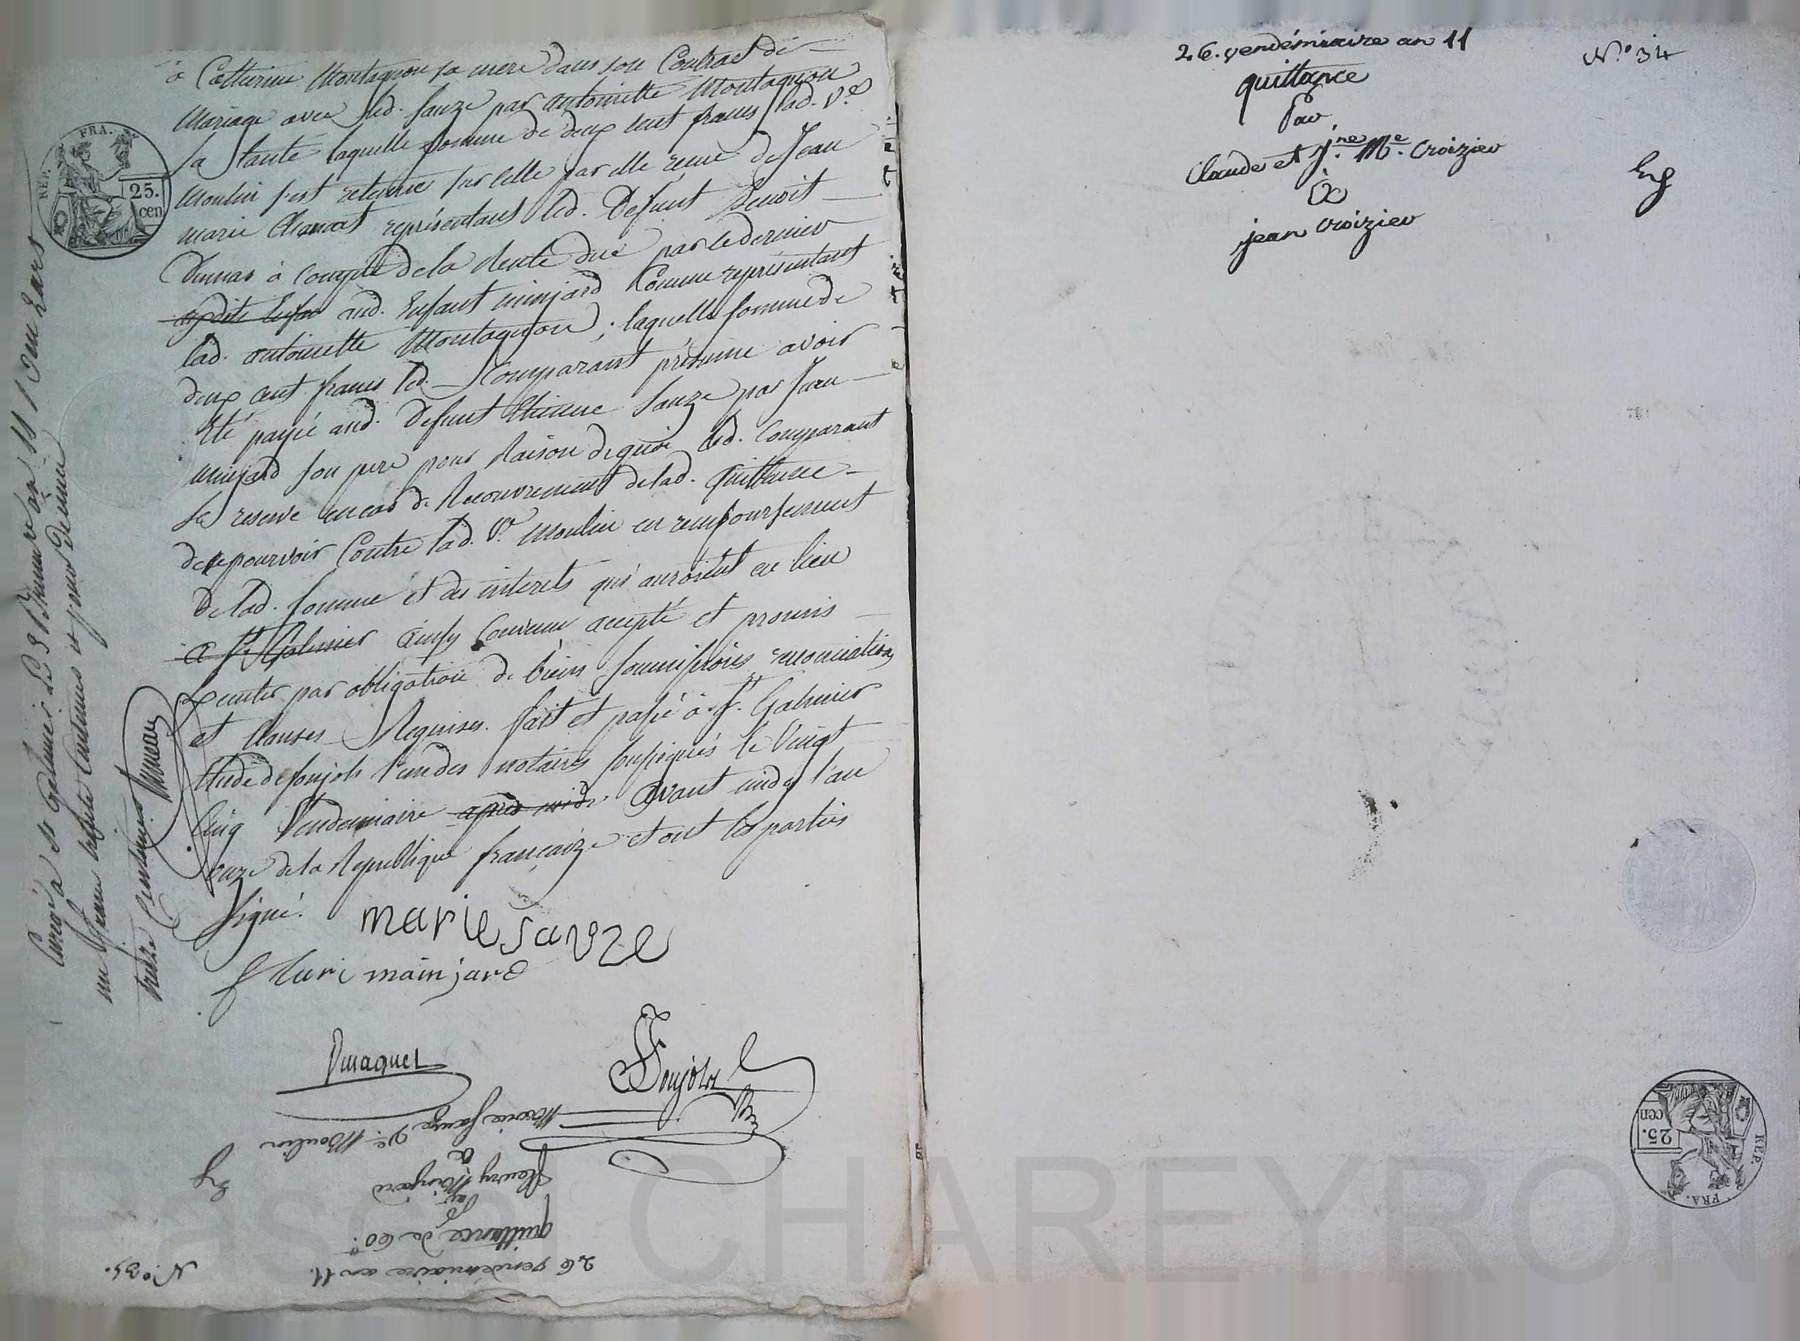 à Catherine Montagnon sa mere dans son Contrat de
Mariage avec led. Sauze par antoinette Montagnon
sa tante laquelle somme de deux cent francs lad. Ve.
Moulin s'est retenue sur celle par elle reçue de Jean
marie representant led. Defunt Benoit
Dumas à compte de la vente due par le dernier
aud. Enfant minjard Comme representant
lad. antoinette Montagnon; laquelle somme de
deux cent francs led. Comparant présume avoir
Eté payée aud. Defunt Etienne Sauze par Jean
minjard son pere pour Raison de quoi led. Comparant
se reserve en cas de Recouvrement de lad. Quittance
de se pourvoir Contre lad. Ve. Moulin en remboursement
de lad. somme et des interets qui auroient eu lieu
à St. Galmier Ainsy Convenu accepté et promis
par obligation de biens soumissions renonciations
et clauses Requises. fait et passé à St. Galmier
Etude de soujols l'un des notaires soussignés le Vingt
Cinq Vendemiaire après midi Avant midy l'an
onze de la Republique françaize et ont les parties
signé.
marie sauze
fleuri mainjard
Dmaguet
Soujols
No
REP. FRA.
25.
cen
26 vendémiaire an 11.
No. 35.
quittance de 60.
Par
fleury Mainjard
à
Marie Sauze Ve. Moulin
Eg
26. vendémiaire an 11
No. 34
quittance
Par
Claude et Jne. Me. Croizier
à
jean Croizier
Eg
REP. FRA.
25.
cen
Pascal CHAREYRON